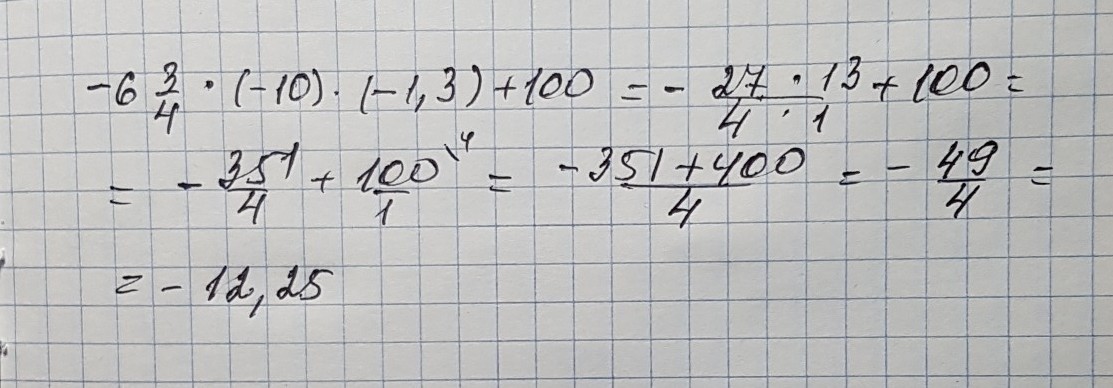 -6 3/4 · (-10) · (-1,3) + 100 = - 27 · 13 / 4 · 1 + 100 =
= - 351/4 + 100\4 / 1 = -351 + 400 / 4 = - 49/4 =
= - 12,25